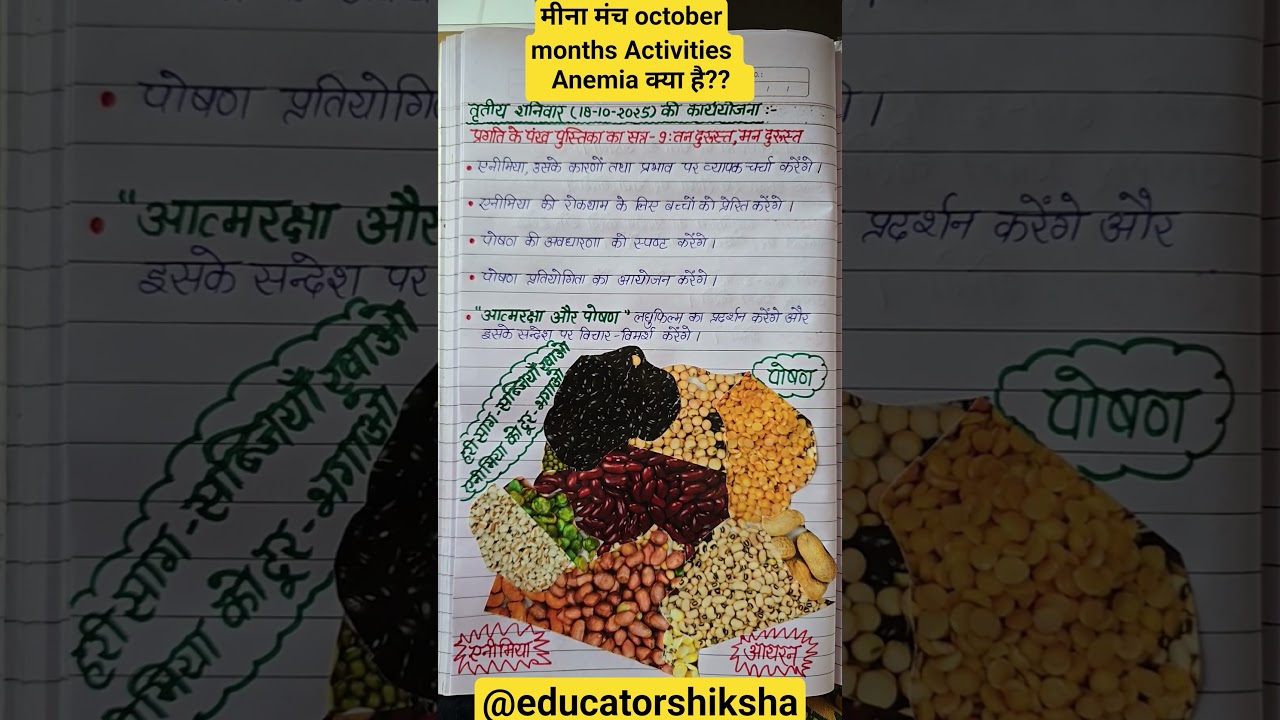 मीना मंच october
months Activities
Anemia क्या है??
तृतीय शनिवार (18-10-2025) की कार्ययोजना :-
प्रगति के पंख पुस्तिका का सत्र - 9 : तन दुरूस्त, मन दुरूस्त
• एनीमिया, उसके कारणों तथा प्रभाव पर व्यापक चर्चा करेंगे ।
• एनीमिया की रोकथाम के लिए बच्चों को प्रेरित करेंगे ।
• पोषण की अवधारणा को स्पष्ट करेंगे ।
• पोषण प्रतियोगिता का आयोजन करेंगे ।
• "आत्मरक्षा और पोषण" लघुफिल्म का प्रदर्शन करेंगे और
इसके सन्देश पर विचार-विमर्श करेंगे ।
हरी साग-सब्जियाँ खाओ
एनीमिया को दूर-भगाओ
पोषण
एनीमिया
आयरन
@educatorshiksha
• पोषण प्रतियोगि
• "आत्मरक्षा और
इसके सन्देश पर
हरी साग-सब्जियाँ खाओ
नीमिया को दूर-भगाओ
प्रदर्शन करेंगे और
पोषण